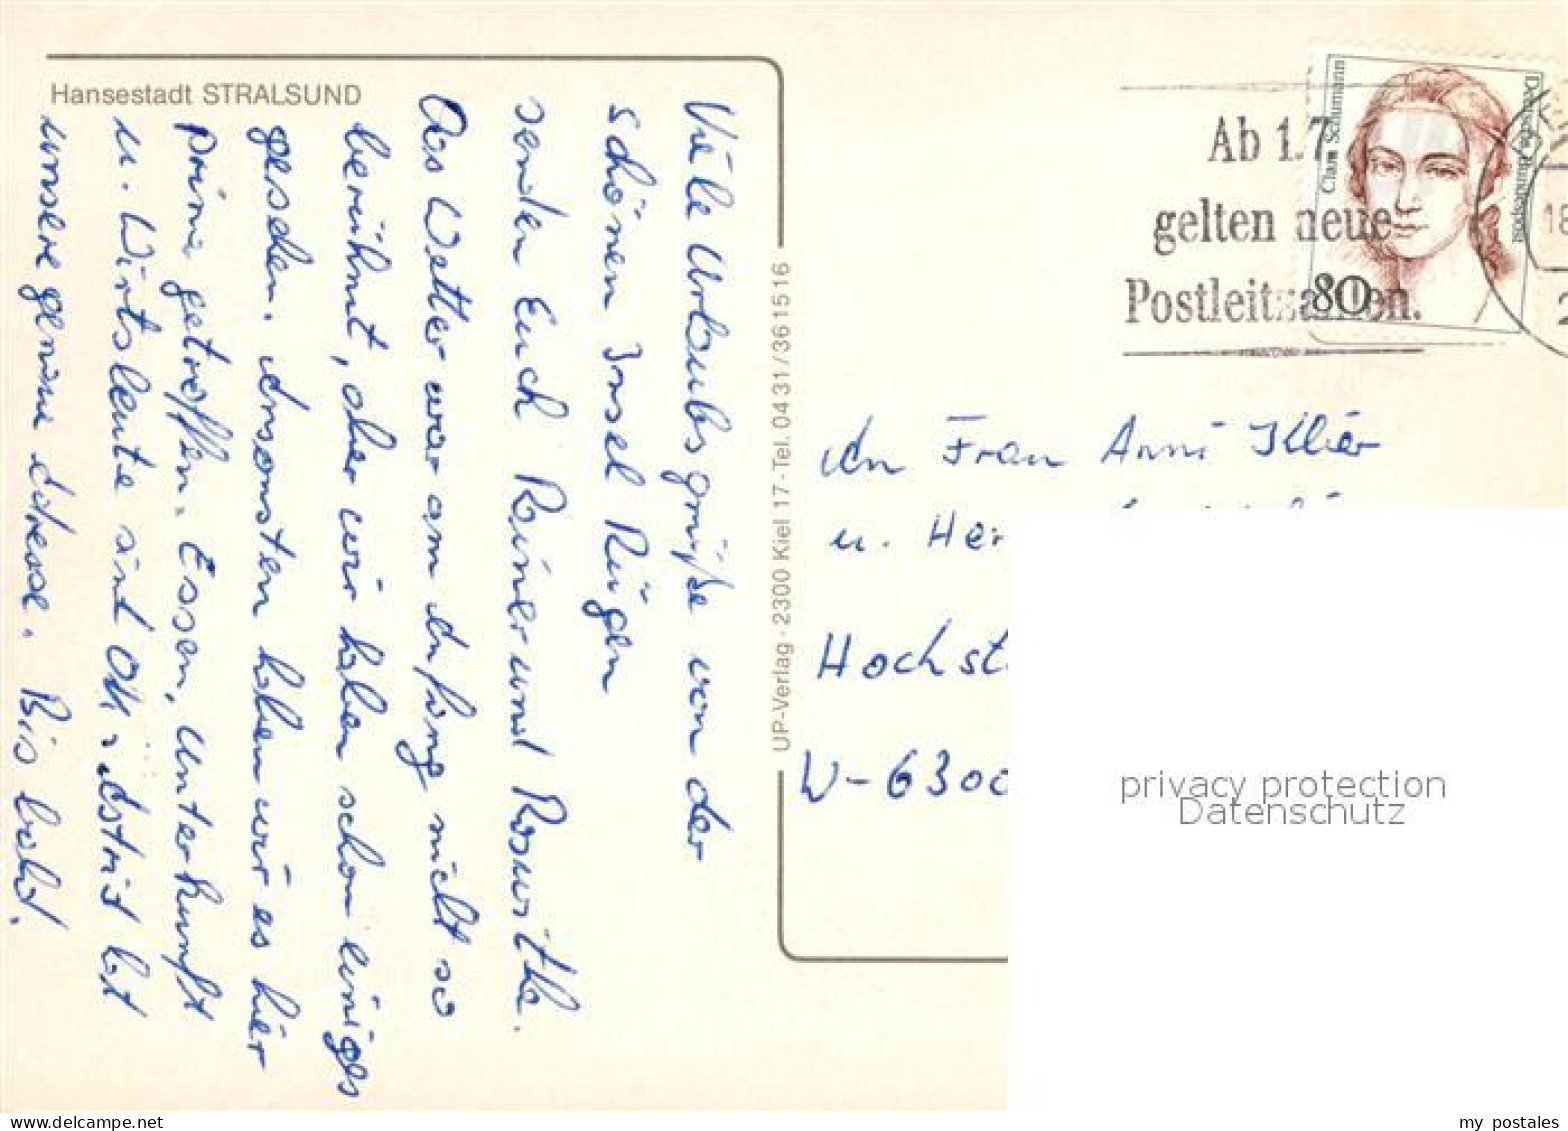 Hansestadt STRALSUND
Viele Urlaubsgrüße von der
schönen Insel Rügen
senden Euch Rainer und Roswitha.
Das Wetter war am Anfang nicht so
berühmt, aber wir haben schon einiges
gesehen. Ansonsten haben wir es hier
prima getroffen. Essen, Unterkunft
u. Wirtsleute sind OK. Astrid hat
unsere genaue Adresse. Bis bald.
UP-Verlag · 2300 Kiel 17 · Tel. 04 31 / 36 15 16
Ab 1.7.
gelten neue
Postleitzahlen.
Clara Schumann
Deutsche Bundespost
80
18
2
An Frau Anni Klier
u. Her
Hochst
W-6300
privacy protection
Datenschutz
my postales